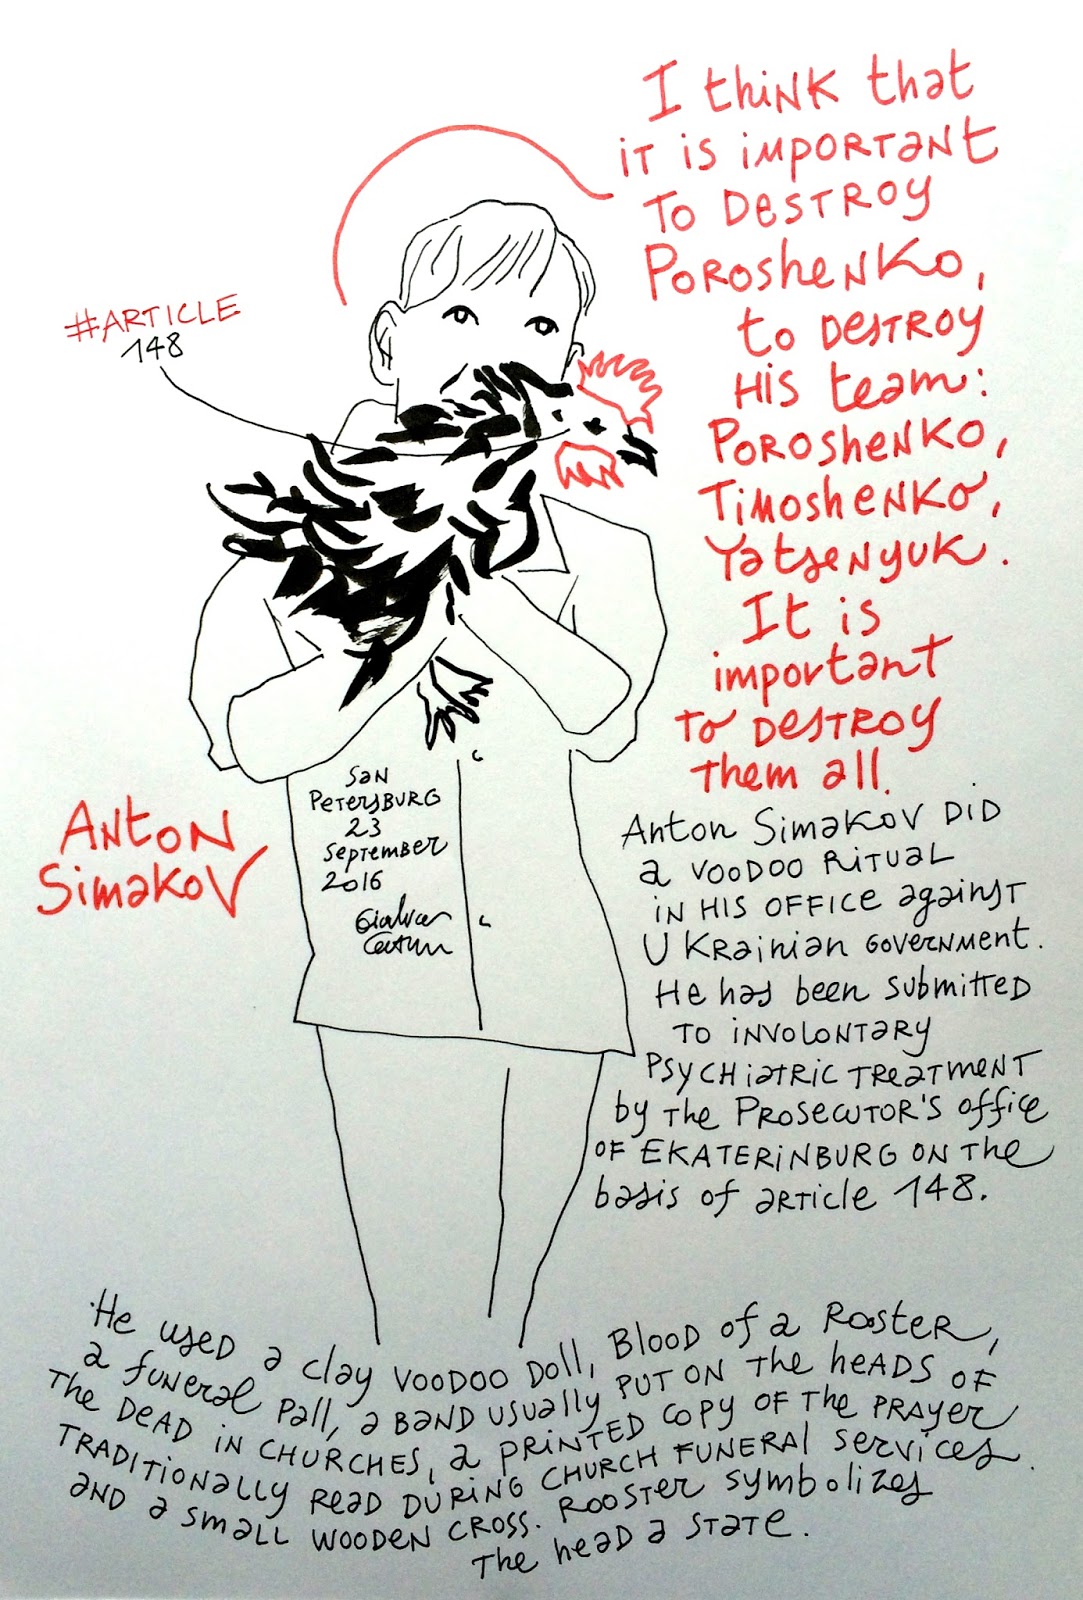 I think that
it is important
to destroy
Poroshenko,
to destroy
His team:
Poroshenko,
Timoshenko,
Yatsenyuk.
It is
important
to destroy
them all.
#ARTICLE
148
Anton
Simakov
San
Petersburg
23
September
2016
Anton Simakov did
a voodoo ritual
in his office against
Ukrainian government.
He has been submitted
to involontary
psychiatric treatment
by the Prosecutor's office
of Ekaterinburg on the
basis of article 148.
He used a clay voodoo doll, blood of a rooster,
a funeral pall, a band usually put on the heads of
the dead in churches, a printed copy of the prayer
traditionally read during church funeral services.
and a small wooden cross. Rooster symbolizes
the head a state.